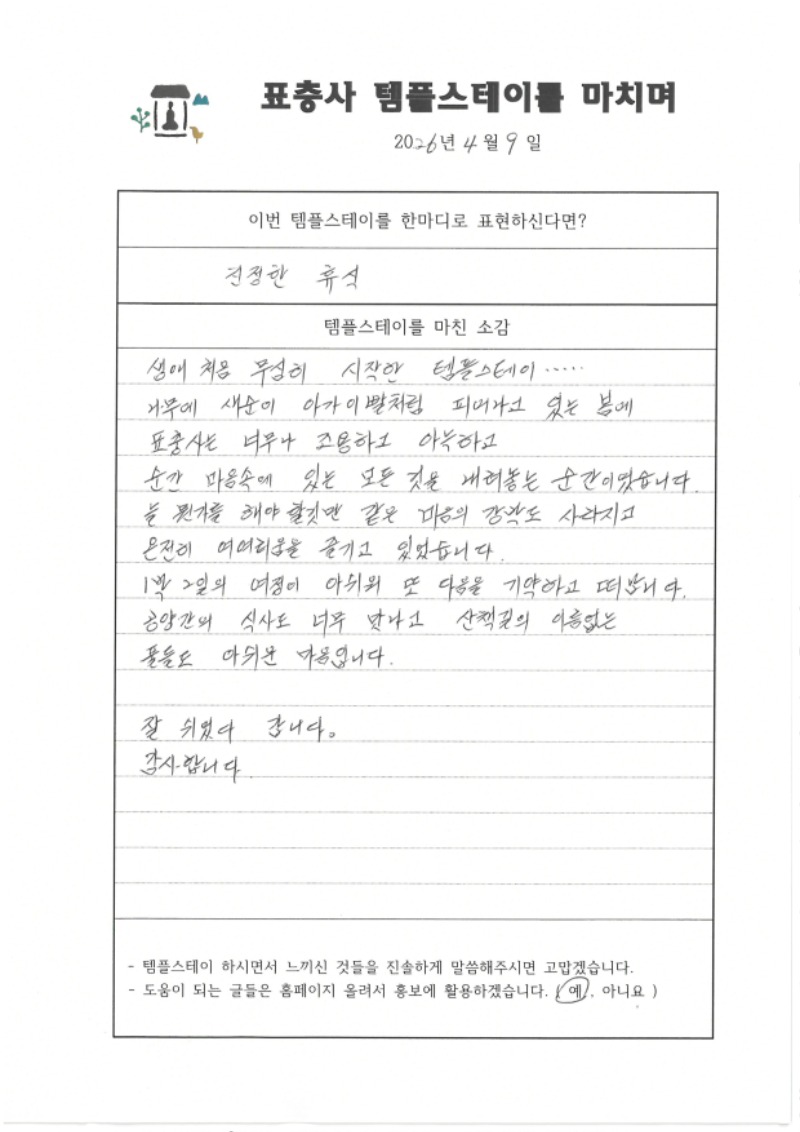 표충사 템플스테이를 마치며
2026년 4월 9일
이번 템플스테이를 한마디로 표현하신다면?
진정한 휴식
템플스테이를 마친 소감
생애 처음 무심히 시작한 템플스테이.....
나무에 새순이 아가 이빨처럼 피어나고 있는 봄에
표충사는 너무나 조용하고 아늑하고
순간 마음속에 있는 모든 것을 내려놓는 순간이였습니다.
늘 뭔가를 해야 할것만 같은 마음의 강박도 사라지고
온전히 여여러움을 즐기고 있었습니다.
1박 2일의 여정이 아쉬워 또 다음을 기약하고 떠납니다.
공양간의 식사도 너무 맛나고 산책길의 이름없는
풀들도 아쉬운 마음입니다.
잘 쉬었다 갑니다.
감사합니다.
- 템플스테이 하시면서 느끼신 것들을 진솔하게 말씀해주시면 고맙겠습니다.
- 도움이 되는 글들은 홈페이지 올려서 홍보에 활용하겠습니다. ( 예, 아니요 )